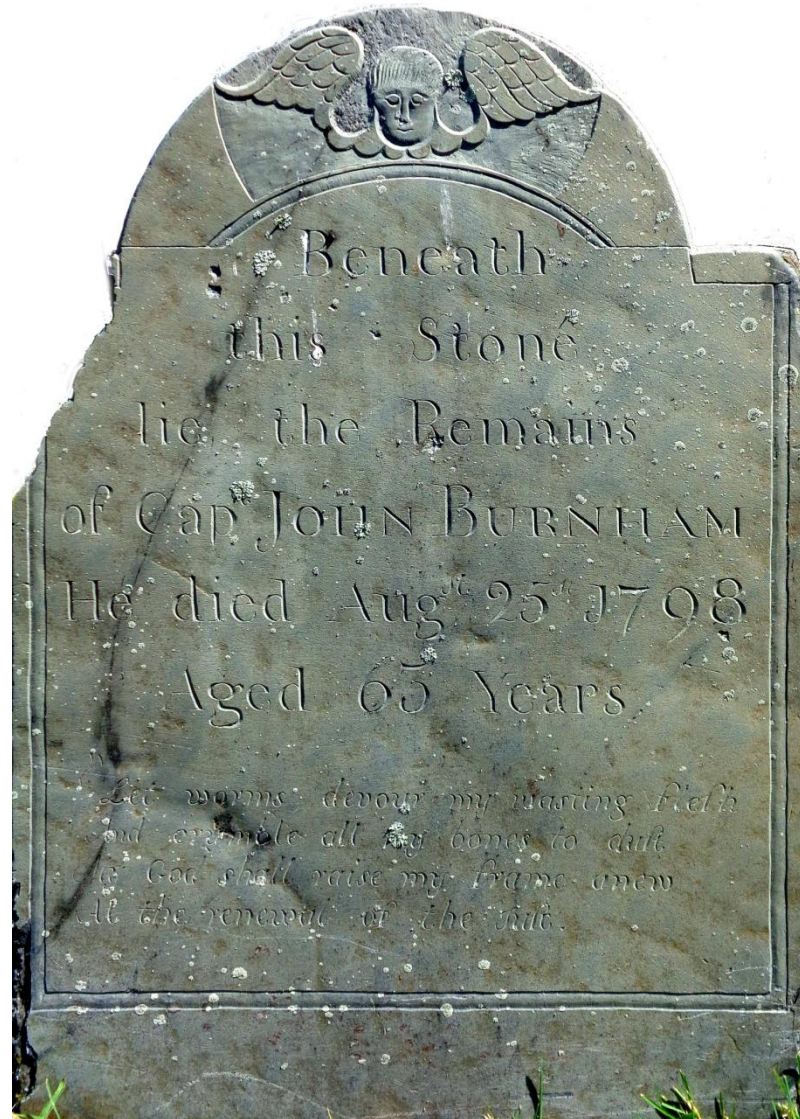 Beneath
this Stone
lie the Remains
of Capt JOHN BURNHAM
He died Augst 25th 1798
Aged 65 Years
Let worms devour my wasting flesh
And crumble all my bones to dust
God shall raise my frame anew
At the of the